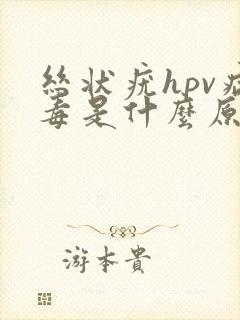 絲狀疣hpv病
毒是什麼原
游本貴